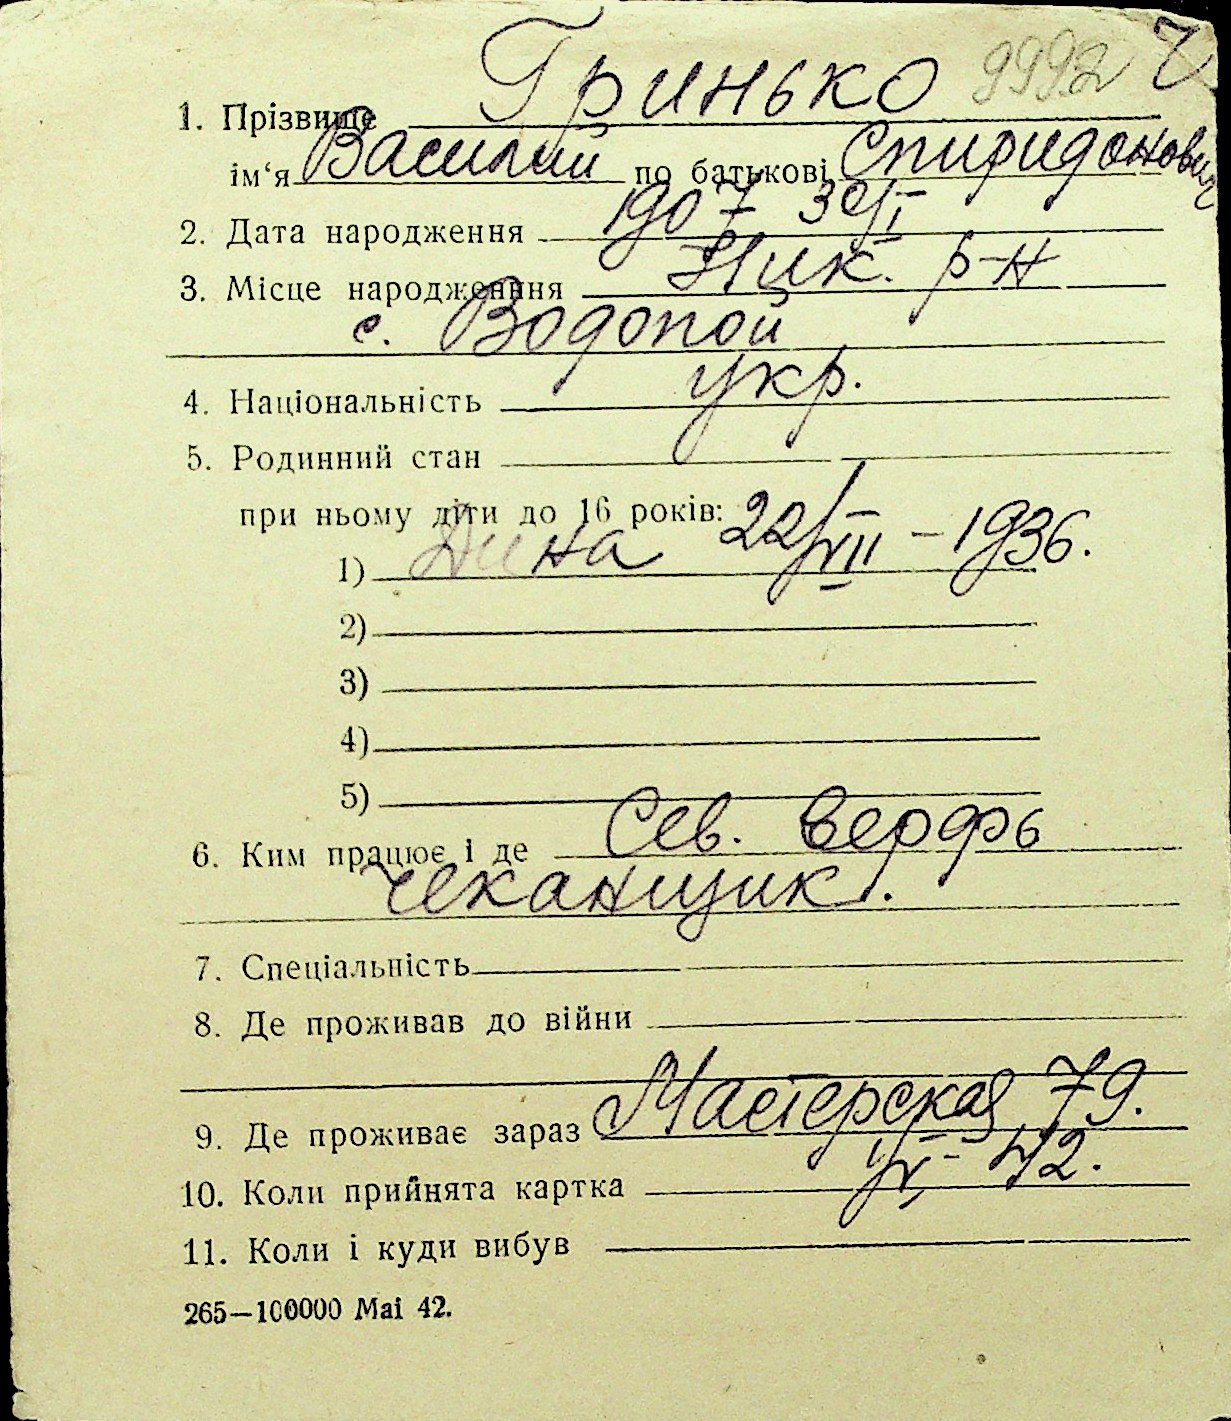 9992
1. Прізвище Гринько
ім‘я Василий по батькові Спиридонович
2. Дата народження 1907 30/I
3. Місце народженння Ник. р-н
с. Водопой
4. Національність укр.
5. Родинний стан
при ньому діти до 16 років:
1) Дина 22/VII – 1936.
2)
3)
4)
5)
6. Ким працює і де Сев. верфь
чеканщик.
7. Спеціальність
8. Де проживав до війни
9. Де проживає зараз Мастерская 79.
10. Коли прийнята картка 42.
11. Коли і куди вибув
265—100000 Mai 42.